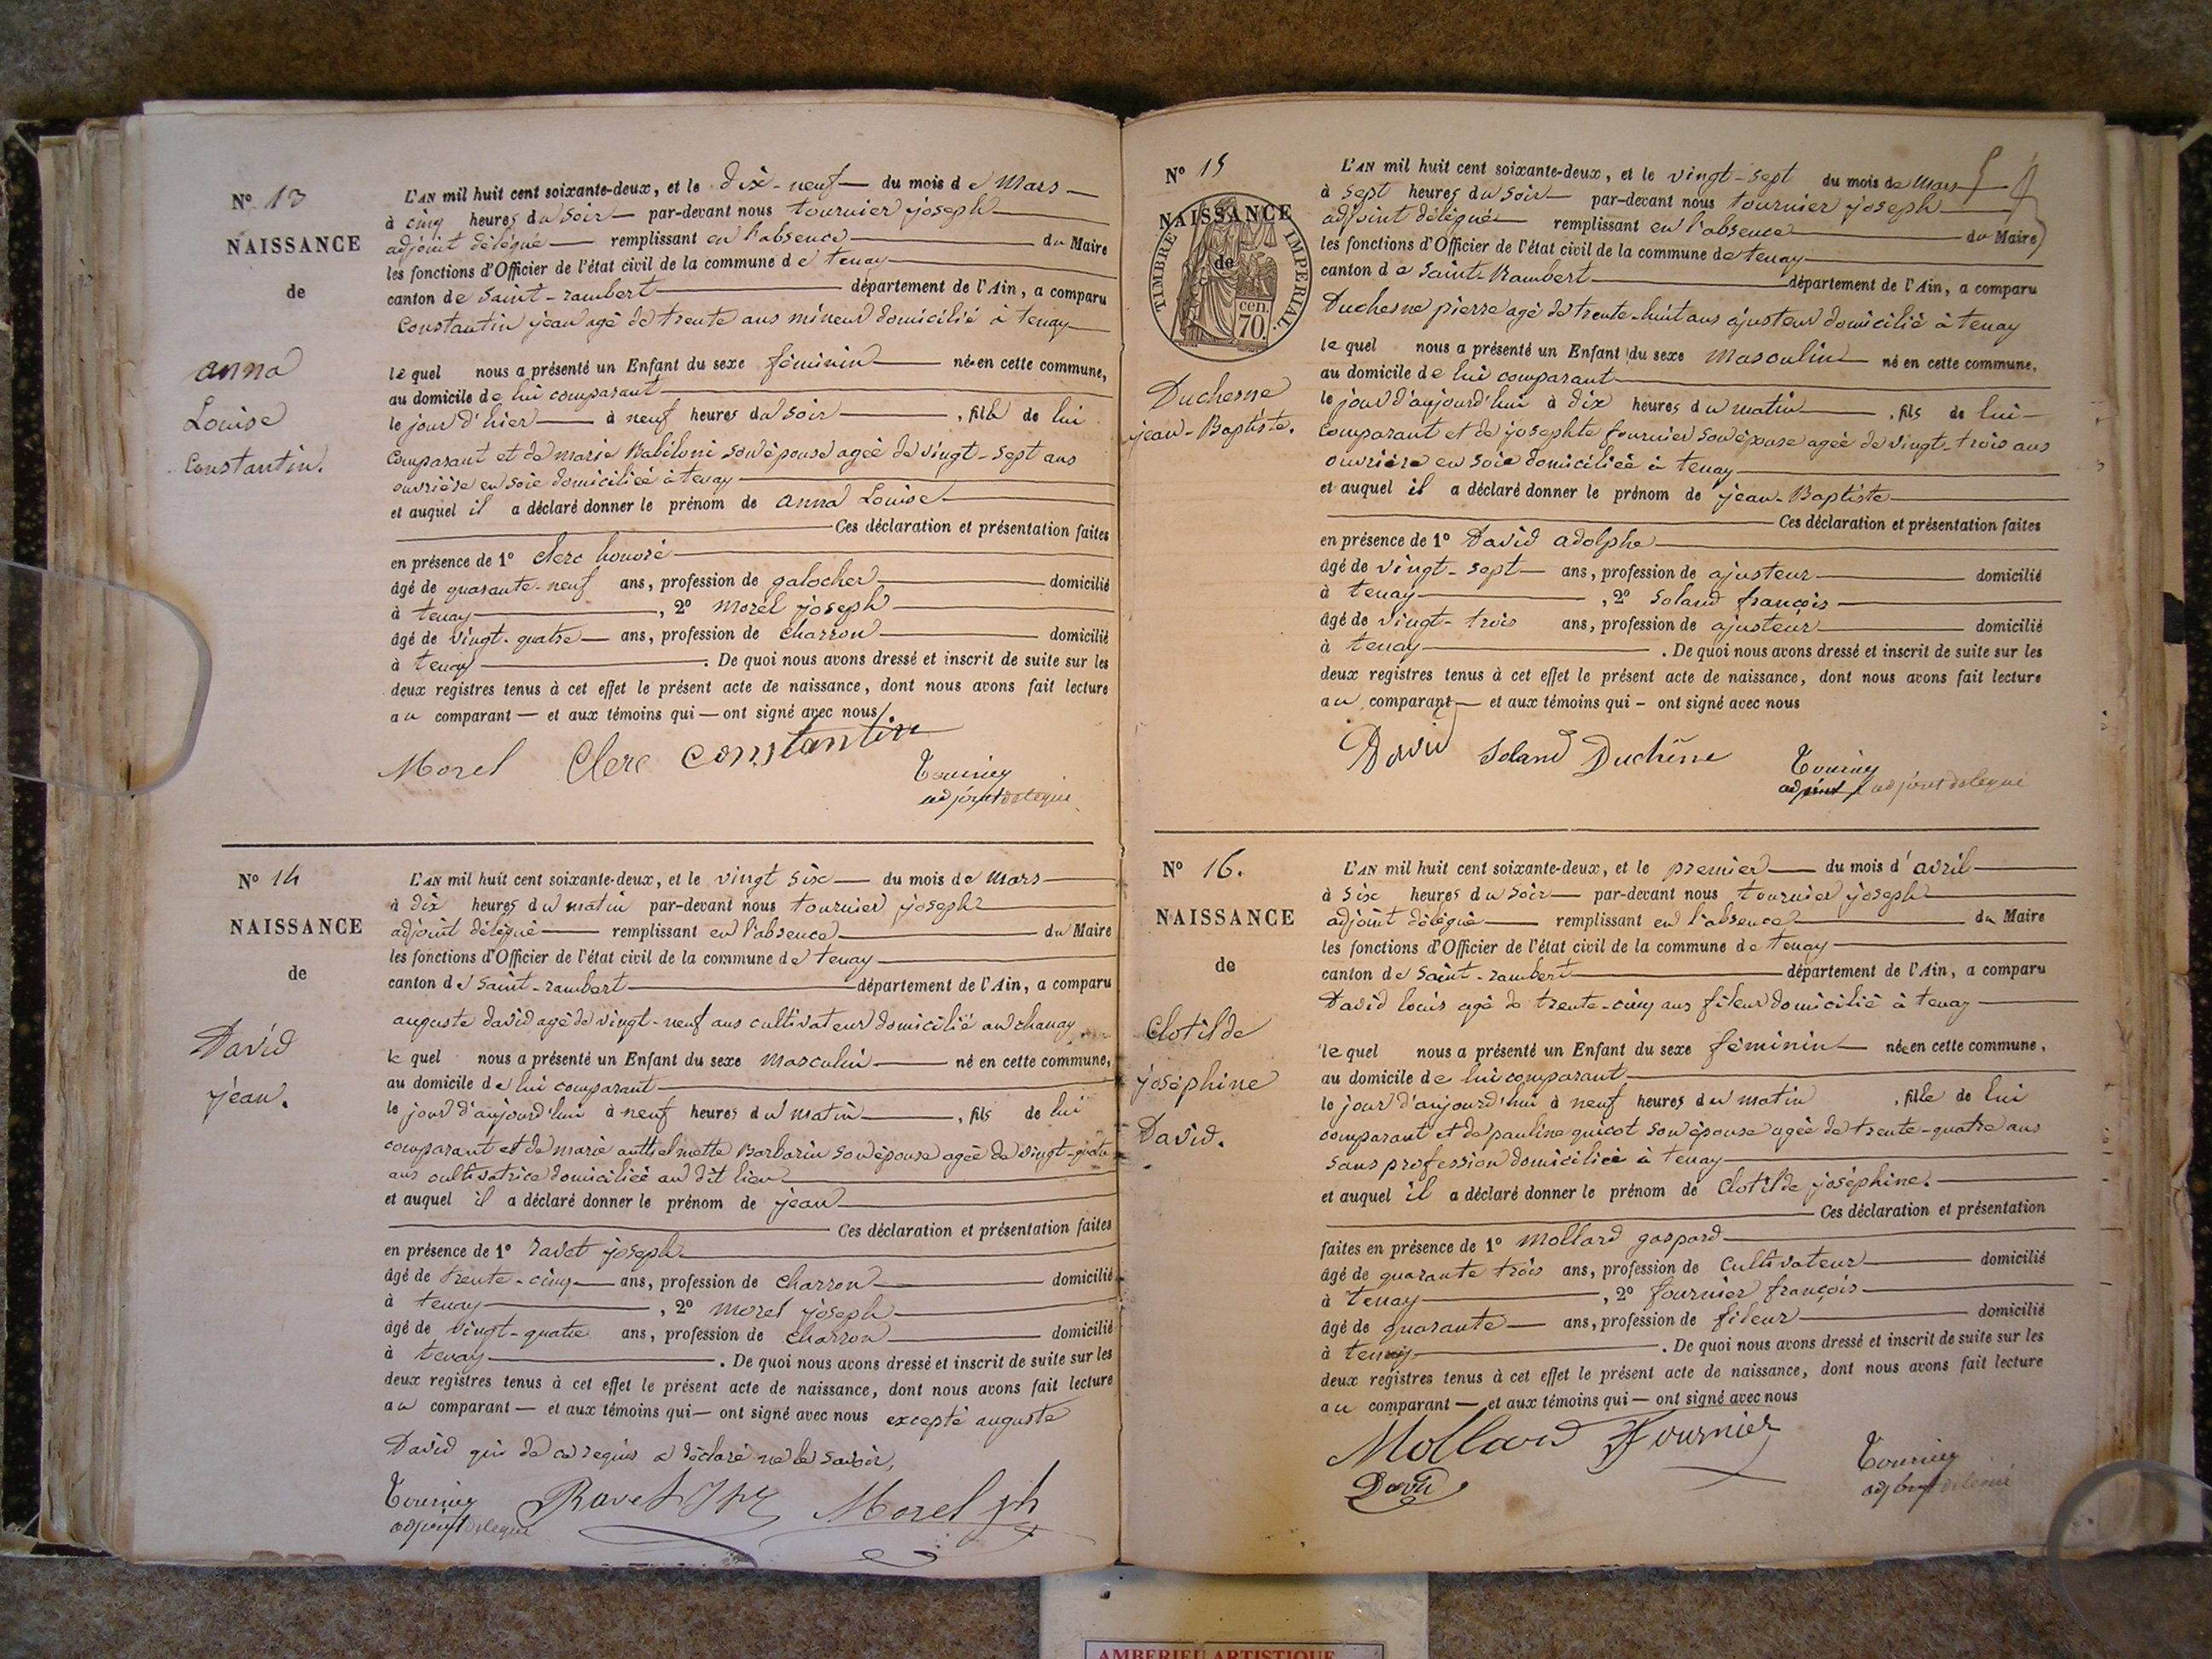 Nº 13
NAISSANCE
de
anna
Louise
Constantin.
L'AN mil huit cent soixante-deux, et le dix-neuf du mois de Mars
à cinq heures du soir par-devant nous tournier joseph
adjoint délégué remplissant en l'absence du Maire
les fonctions d'Officier de l'état civil de la commune de tenay
canton de Saint-rambert département de l'Ain, a comparu
Constantin jean agé de trente ans mineur domicilié à tenay
lequel nous a présenté un Enfant du sexe féminin née en cette commune,
au domicile de lui comparant
le jour d'hier à neuf heures du soir, fille de lui
comparant et de marie Babiloni son épouse agée de vingt-sept ans
ouvrière en soie domiciliée à tenay
et auquel il a déclaré donner le prénom de anna Louise
Ces déclaration et présentation faites
en présence de 1º clerc honoré
âgé de quarante-neuf ans, profession de galocher domicilié
à tenay, 2º morel joseph
âgé de vingt-quatre ans, profession de charron domicilié
à tenay. De quoi nous avons dressé et inscrit de suite sur les
deux registres tenus à cet effet le présent acte de naissance, dont nous avons fait lecture
au comparant et aux témoins qui ont signé avec nous
Morel Clerc Constantin
Tournier
adjoint delegué
Nº 14
NAISSANCE
de
David
jean.
L'AN mil huit cent soixante-deux, et le vingt six du mois de Mars
à dix heures du matin par-devant nous tournier joseph
adjoint délégué remplissant en l'absence du Maire
les fonctions d'Officier de l'état civil de la commune de tenay
canton de Saint-rambert département de l'Ain, a comparu
auguste david agé de vingt-neuf ans cultivateur domicilié au chanay
lequel nous a présenté un Enfant du sexe masculin né en cette commune,
au domicile de lui comparant
le jour d'aujourd'hui à neuf heures du matin, fils de lui
comparant et de marie anthelmette Barbarin son épouse agée de vingt-quatre
ans cultivatrice domiciliée au dit lieu
et auquel il a déclaré donner le prénom de jean
Ces déclaration et présentation faites
en présence de 1º ravet joseph
âgé de trente-cinq ans, profession de charron domicilié
à tenay, 2º morel joseph
âgé de vingt-quatre ans, profession de charron domicilié
à tenay. De quoi nous avons dressé et inscrit de suite sur les
deux registres tenus à cet effet le présent acte de naissance, dont nous avons fait lecture
au comparant et aux témoins qui ont signé avec nous excepté auguste
David qui de ce requis a déclaré ne le savoir,
Tournier Ravet Morel jh
adjoint delegué
Nº 15
NAISSANCE
de
TIMBRE IMPERIAL
cen.
70.
Duchesne
jean-Baptiste.
L'AN mil huit cent soixante-deux, et le vingt-sept du mois de Mars
à sept heures du soir par-devant nous tournier joseph
adjoint délégué remplissant en l'absence du Maire
les fonctions d'Officier de l'état civil de la commune de tenay
canton de Saint-Rambert département de l'Ain, a comparu
Duchesne pierre agé de trente-huit ans ajusteur domicilié à tenay
lequel nous a présenté un Enfant du sexe masculin né en cette commune,
au domicile de lui comparant
le jour d'aujourd'hui à dix heures du matin, fils de lui
comparant et de josephte fournier son épouse agée de vingt-trois ans
ouvrière en soie domiciliée à tenay
et auquel il a déclaré donner le prénom de jean-Baptiste
Ces déclaration et présentation faites
en présence de 1º David adolphe
âgé de vingt-sept ans, profession de ajusteur domicilié
à tenay, 2º soland françois
âgé de vingt-trois ans, profession de ajusteur domicilié
à tenay. De quoi nous avons dressé et inscrit de suite sur les
deux registres tenus à cet effet le présent acte de naissance, dont nous avons fait lecture
au comparant et aux témoins qui ont signé avec nous
David Soland Duchêne
Tournier
adjoint adjoint delegué
Nº 16.
NAISSANCE
de
Clotilde
joséphine
David.
L'AN mil huit cent soixante-deux, et le premier du mois d'avril
à six heures du soir par-devant nous tournier joseph
adjoint délégué remplissant en l'absence du Maire
les fonctions d'Officier de l'état civil de la commune de tenay
canton de Saint-rambert département de l'Ain, a comparu
David louis agé de trente-cinq ans fileur domicilié à tenay
lequel nous a présenté un Enfant du sexe féminin née en cette commune,
au domicile de lui comparant
le jour d'aujourd'hui à neuf heures du matin, fille de lui
comparant et de pauline guicot son épouse agée de trente-quatre ans
sans profession domiciliée à tenay
et auquel il a déclaré donner le prénom de Clotilde joséphine.
Ces déclaration et présentation
faites en présence de 1º mollard gaspard
âgé de quarante trois ans, profession de cultivateur domicilié
à tenay, 2º fournier françois
âgé de quarante ans, profession de fileur domicilié
à tenay. De quoi nous avons dressé et inscrit de suite sur les
deux registres tenus à cet effet le présent acte de naissance, dont nous avons fait lecture
au comparant et aux témoins qui ont signé avec nous
Mollard Fournier
David
Tournier
adjoint delegué
AMBERIEU ARTISTIQUE